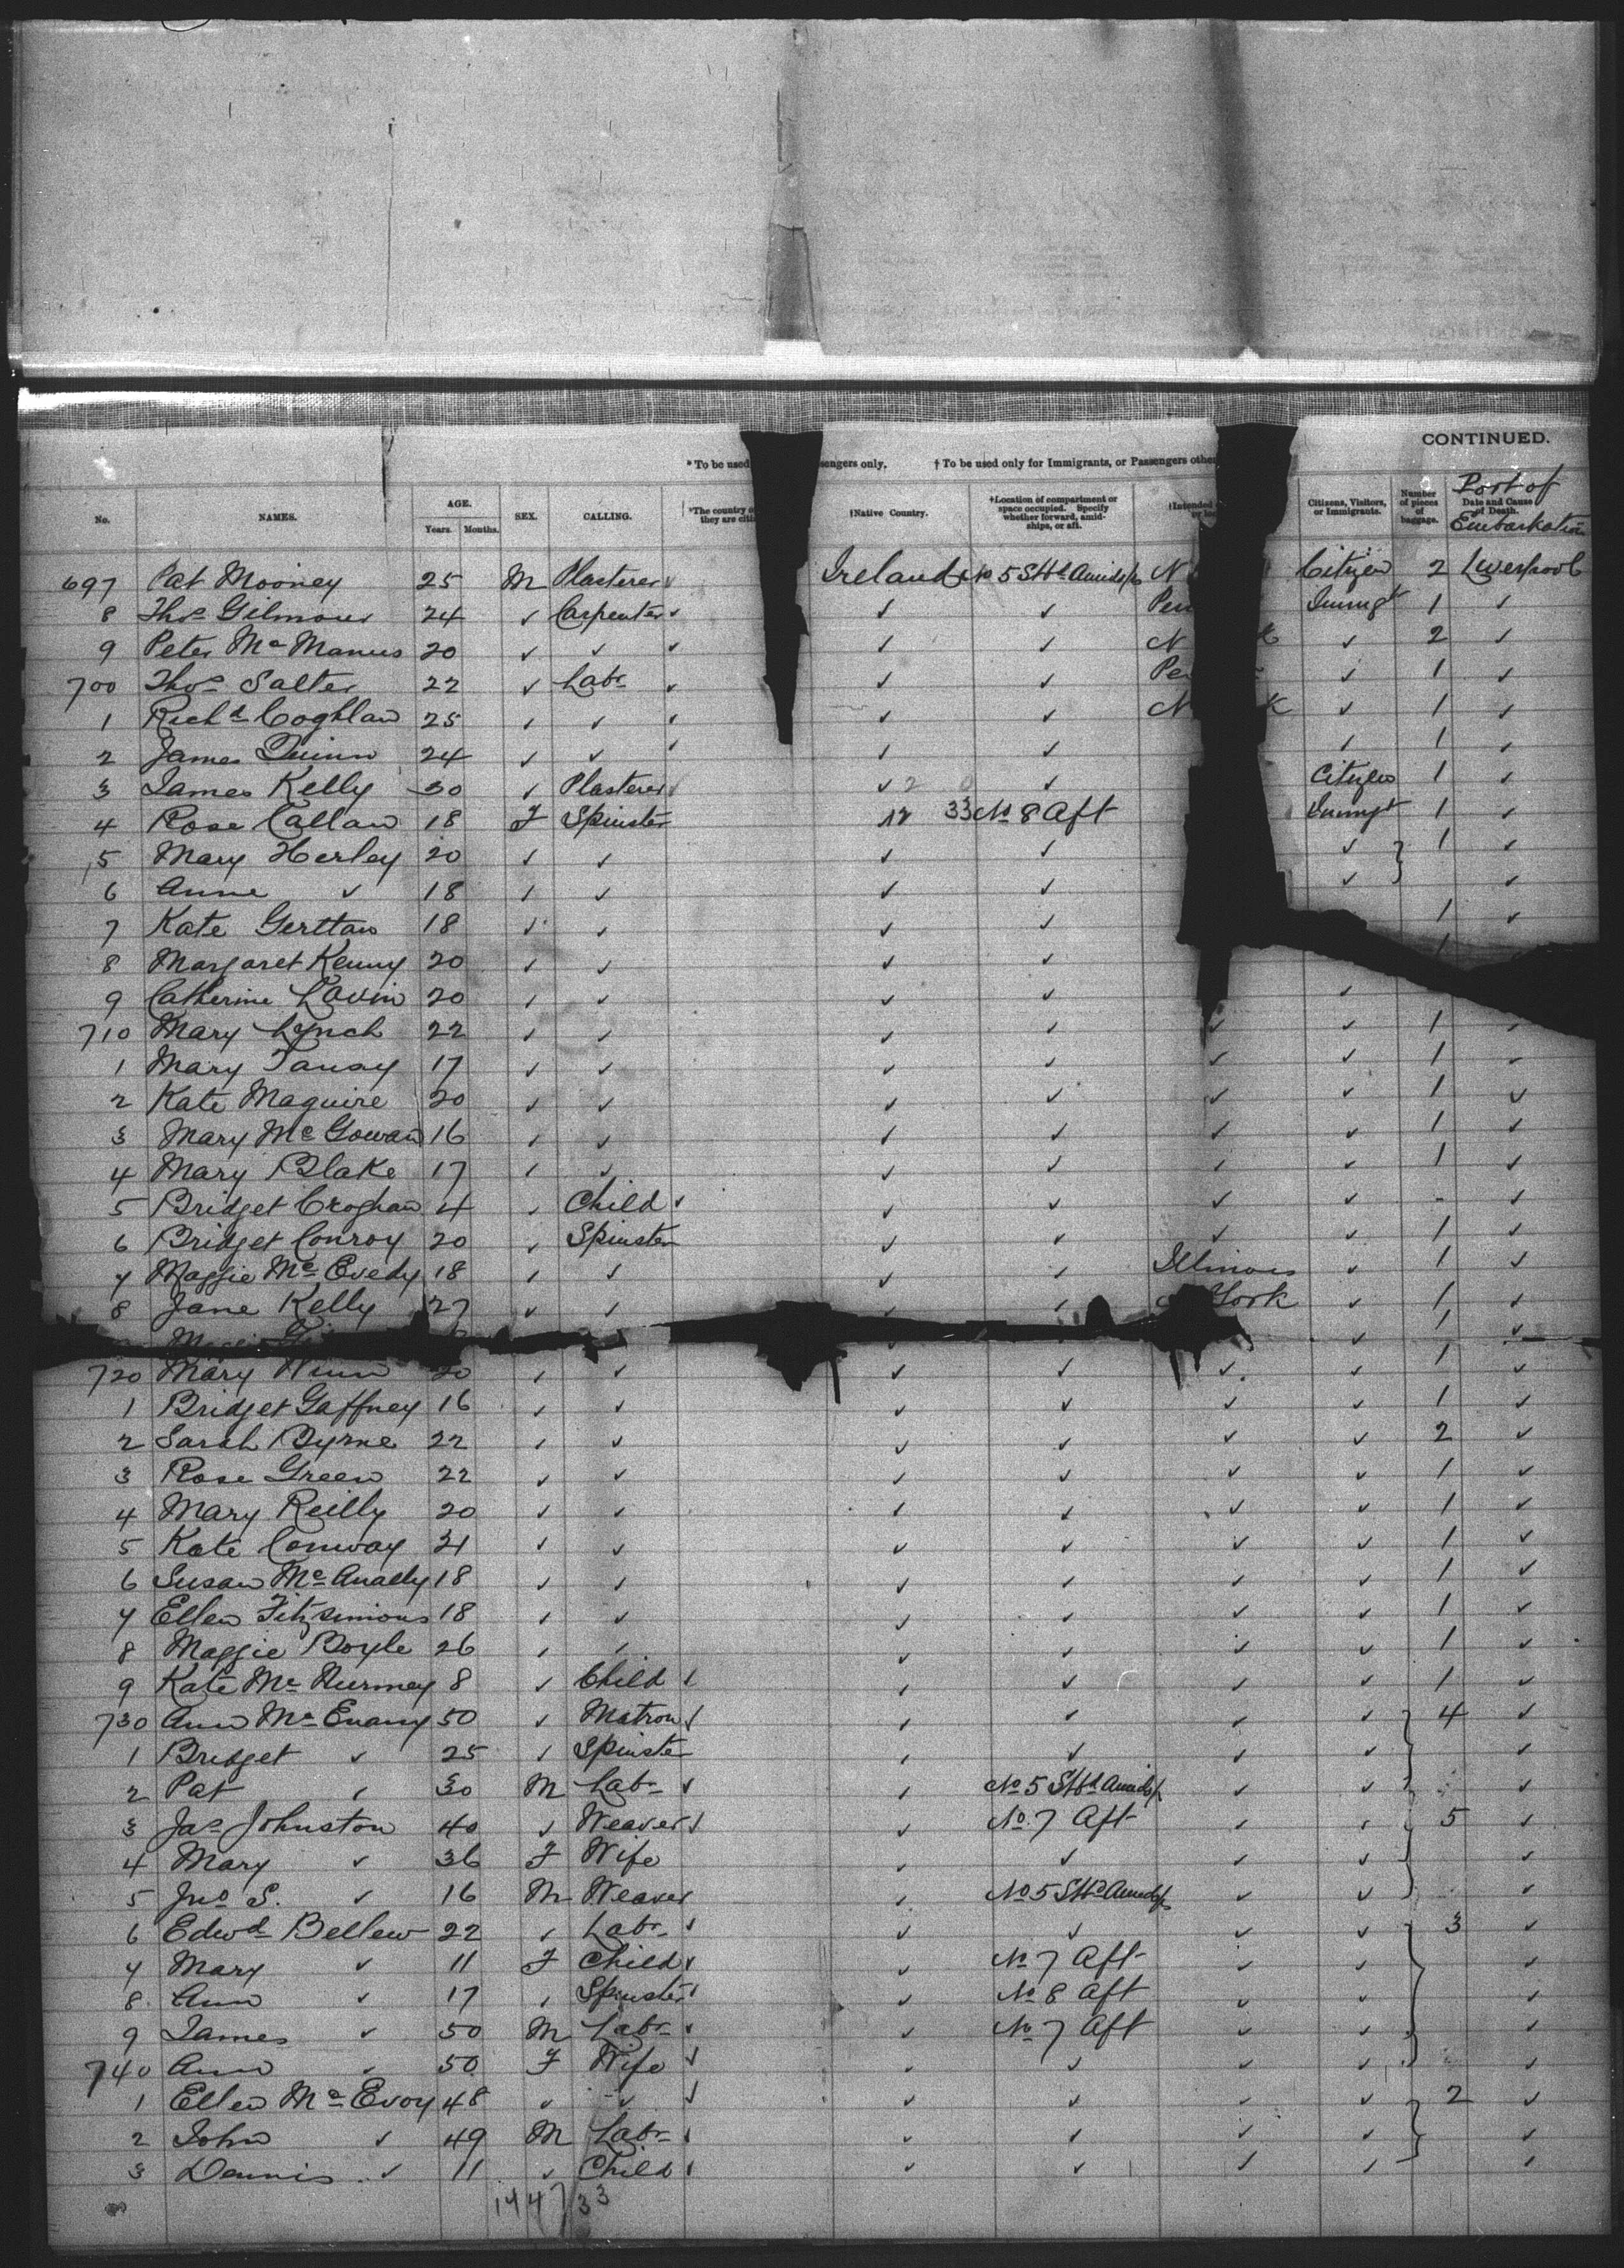 CONTINUED.
* To be used sengers only. † To be used only for Immigrants, or Passengers other
No. NAMES. AGE. Years. Months. SEX. CALLING. *The country o they are citi †Native Country. †Location of compartment or space occupied. Specify whether forward, amid-ships, or aft. †Intended Citizens, Visitors, or Immigrants. Number of pieces of baggage. Date and Cause of Death. Port of Embarkation
697 Pat Mooney 25 M Plasterer ✓ Ireland No 5 Stbd Amids N Citizen 2 Liverpool
8 Thos Gilmour 24 ✓ Carpenter ✓ ✓ ✓ Pen Immgt 1 ✓
9 Peter Mc Manus 20 ✓ ✓ ✓ ✓ ✓ N k ✓ 2 ✓
700 Thos Salter 22 ✓ Labr ✓ ✓ ✓ Pe ✓ 1 ✓
1 Richd Coghlan 25 ✓ ✓ ✓ ✓ ✓ N k ✓ 1 ✓
2 James Quinn 24 ✓ ✓ ✓ ✓ ✓ ✓ 1 ✓
3 James Kelly 30 ✓ Plasterer ✓ ✓ 2 ✓ Citizen 1 ✓
4 Rose Callan 18 F Spinster 12 33 No 8 Aft Immgt 1 ✓
5 Mary Herley 20 ✓ ✓ ✓ ✓ ✓ } 1 ✓
6 Anne ✓ 18 ✓ ✓ ✓ ✓ ✓ ✓
7 Kate Gerttan 18 ✓ ✓ ✓ ✓ 1 ✓
8 Margaret Kenny 20 ✓ ✓ ✓ ✓
9 Catherine Lavin 20 ✓ ✓ ✓ ✓ ✓
710 Mary Lynch 22 ✓ ✓ ✓ ✓ ✓ ✓ 1 ✓
1 Mary Tansy 17 ✓ ✓ ✓ ✓ ✓ ✓ 1 ✓
2 Kate Maguire 20 ✓ ✓ ✓ ✓ ✓ ✓ 1 ✓
3 Mary Mc Gowan 16 ✓ ✓ ✓ ✓ ✓ ✓ 1 ✓
4 Mary Blake 17 ✓ ✓ ✓ ✓ ✓ ✓ 1 ✓
5 Bridget Croghan 4 ✓ Child ✓ ✓ ✓ ✓ ✓ - ✓
6 Bridget Conroy 20 ✓ Spinster ✓ ✓ ✓ ✓ 1 ✓
7 Maggie Mc Evedy 18 ✓ ✓ ✓ ✓ Illinois ✓ 1 ✓
8 Jane Kelly 27 ✓ ✓ ✓ ✓ York ✓ 1 ✓
✓ 1 ✓
720 Mary 20 ✓ ✓ ✓ ✓ ✓ ✓ 1 ✓
1 Bridget Gaffney 16 ✓ ✓ ✓ ✓ ✓ ✓ 1 ✓
2 Sarah Byrne 22 ✓ ✓ ✓ ✓ ✓ ✓ 2 ✓
3 Rose Green 22 ✓ ✓ ✓ ✓ ✓ ✓ 1 ✓
4 Mary Reilly 20 ✓ ✓ ✓ ✓ ✓ ✓ 1 ✓
5 Kate Conway 21 ✓ ✓ ✓ ✓ ✓ ✓ 1 ✓
6 Susan Mc Anally 18 ✓ ✓ ✓ ✓ ✓ ✓ 1 ✓
7 Ellen Fitzsimons 18 ✓ ✓ ✓ ✓ ✓ ✓ 1 ✓
8 Maggie Boyle 26 ✓ ✓ ✓ ✓ ✓ ✓ 1 ✓
9 Kate Mc Nurmey 8 ✓ Child ✓ ✓ ✓ ✓ ✓ 1 ✓
730 Ann Mc Enany 50 ✓ Matron ✓ ✓ ✓ ✓ ✓ } 4 ✓
1 Bridget ✓ 25 ✓ Spinster ✓ ✓ ✓ ✓ ✓
2 Pat ✓ 30 M Labr ✓ ✓ No 5 Stbd Amids ✓ ✓ ✓
3 Jas Johnston 40 ✓ Weaver ✓ ✓ No 7 Aft ✓ ✓ } 5 ✓
4 Mary ✓ 36 F Wife ✓ ✓ ✓ ✓ ✓
5 Jno S. ✓ 16 M Weaver ✓ No 5 Stbd Amids ✓ ✓ ✓
6 Edwd Bellew 22 ✓ Labr ✓ ✓ ✓ ✓ ✓ } 3 ✓
7 Mary ✓ 11 F Child ✓ ✓ No 7 Aft ✓ ✓ ✓
8 Ann ✓ 17 ✓ Spinster ✓ ✓ No 8 Aft ✓ ✓ ✓
9 James ✓ 50 M Labr ✓ ✓ No 7 Aft ✓ ✓ ✓
740 Ann ✓ 50 F Wife ✓ ✓ ✓ ✓ ✓ ✓
1 Ellen Mc Evoy 48 ✓ ✓ ✓ ✓ ✓ ✓ ✓ } 2 ✓
2 John ✓ 49 M Labr ✓ ✓ ✓ ✓ ✓ ✓
3 Dennis ✓ 11 ✓ Child ✓ ✓ ✓ ✓ ✓ ✓
14 47 33